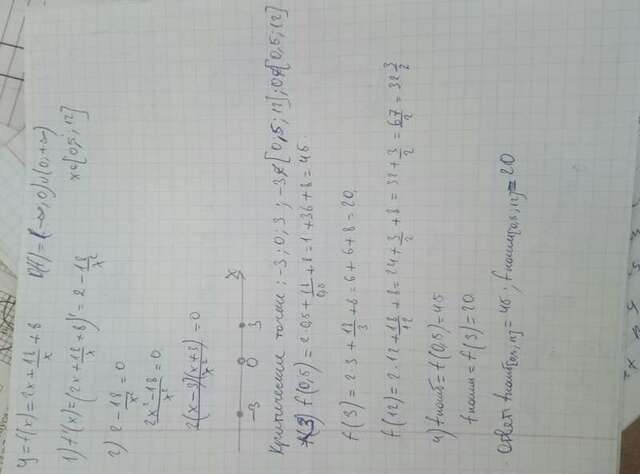 y=f(x)=2x+18/x+8 D(f)=(-∞,0)∪(0,+∞)
x∈[0,5;12]
1) f'(x)=(2x+18/x+8)'=2-18/x²
2) 2-18/x²=0
2x²-18/x²=0
2(x-3)(x+3)/x²=0
-3 0 3 x
Критические точки: -3;0;3; -3∉[0,5;12];0∉[0,5;12]
3) f(0,5)=2·0,5+18/0,5+8=1+36+8=45.
f(3)=2·3+18/3+8=6+6+8=20.
f(12)=2·12+18/12+8=24+3/2+8=32+3/2=67/2=32 3/2
4) fнаиб=f(0,5)=45
fнаим=f(3)=20.
Ответ: fнаиб[0,5;12]=45; fнаим[0,5;12]=20